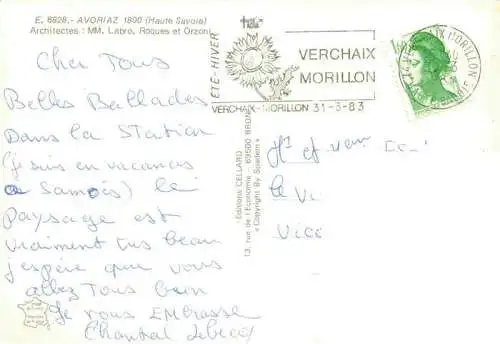 E. 6828.- AVORIAZ 1800 (Haute Savoie)
Architectes : MM. Labro, Roques et Orzoni
Cher Tous
Belles Ballades
Dans la Station
(je suis en vacances
a Samoës) le
paysage est
vraiment tres beau
j'espère que vous
allez Tous bien
Je vous EMBrasse
Chantal
Editions CELLARD
13, rue de l'Economie - 69500 BRON
« Copyright By Spadem »
ETE-HIVER
VERCHAIX
MORILLON
VERCHAIX-MORILLON 31-3-83
MORILLON
et
le Vi